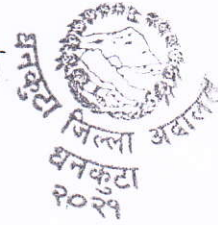 धनकुटा जिल्ला अदालत
धनकुटा
२०२१